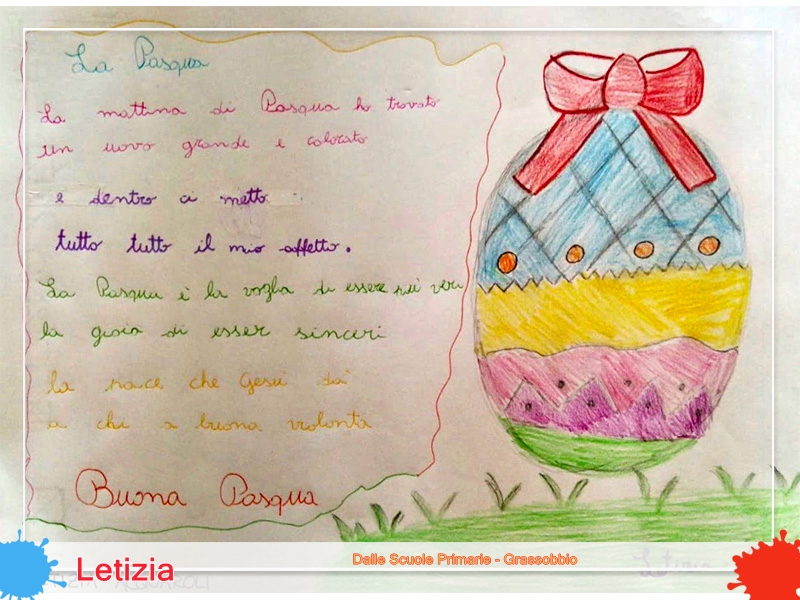 La Pasqua
La mattina di Pasqua ho trovato
un uovo grande e colorato
e dentro ci metto
tutto tutto il mio affetto.
La Pasqua è la voglia di essere più veri
la gioia di esser sinceri
la pace che Gesù dà
a chi a buona volonta
Buona Pasqua
Letizia
Dalle Scuole Primarie - Grassobbio
Letizia